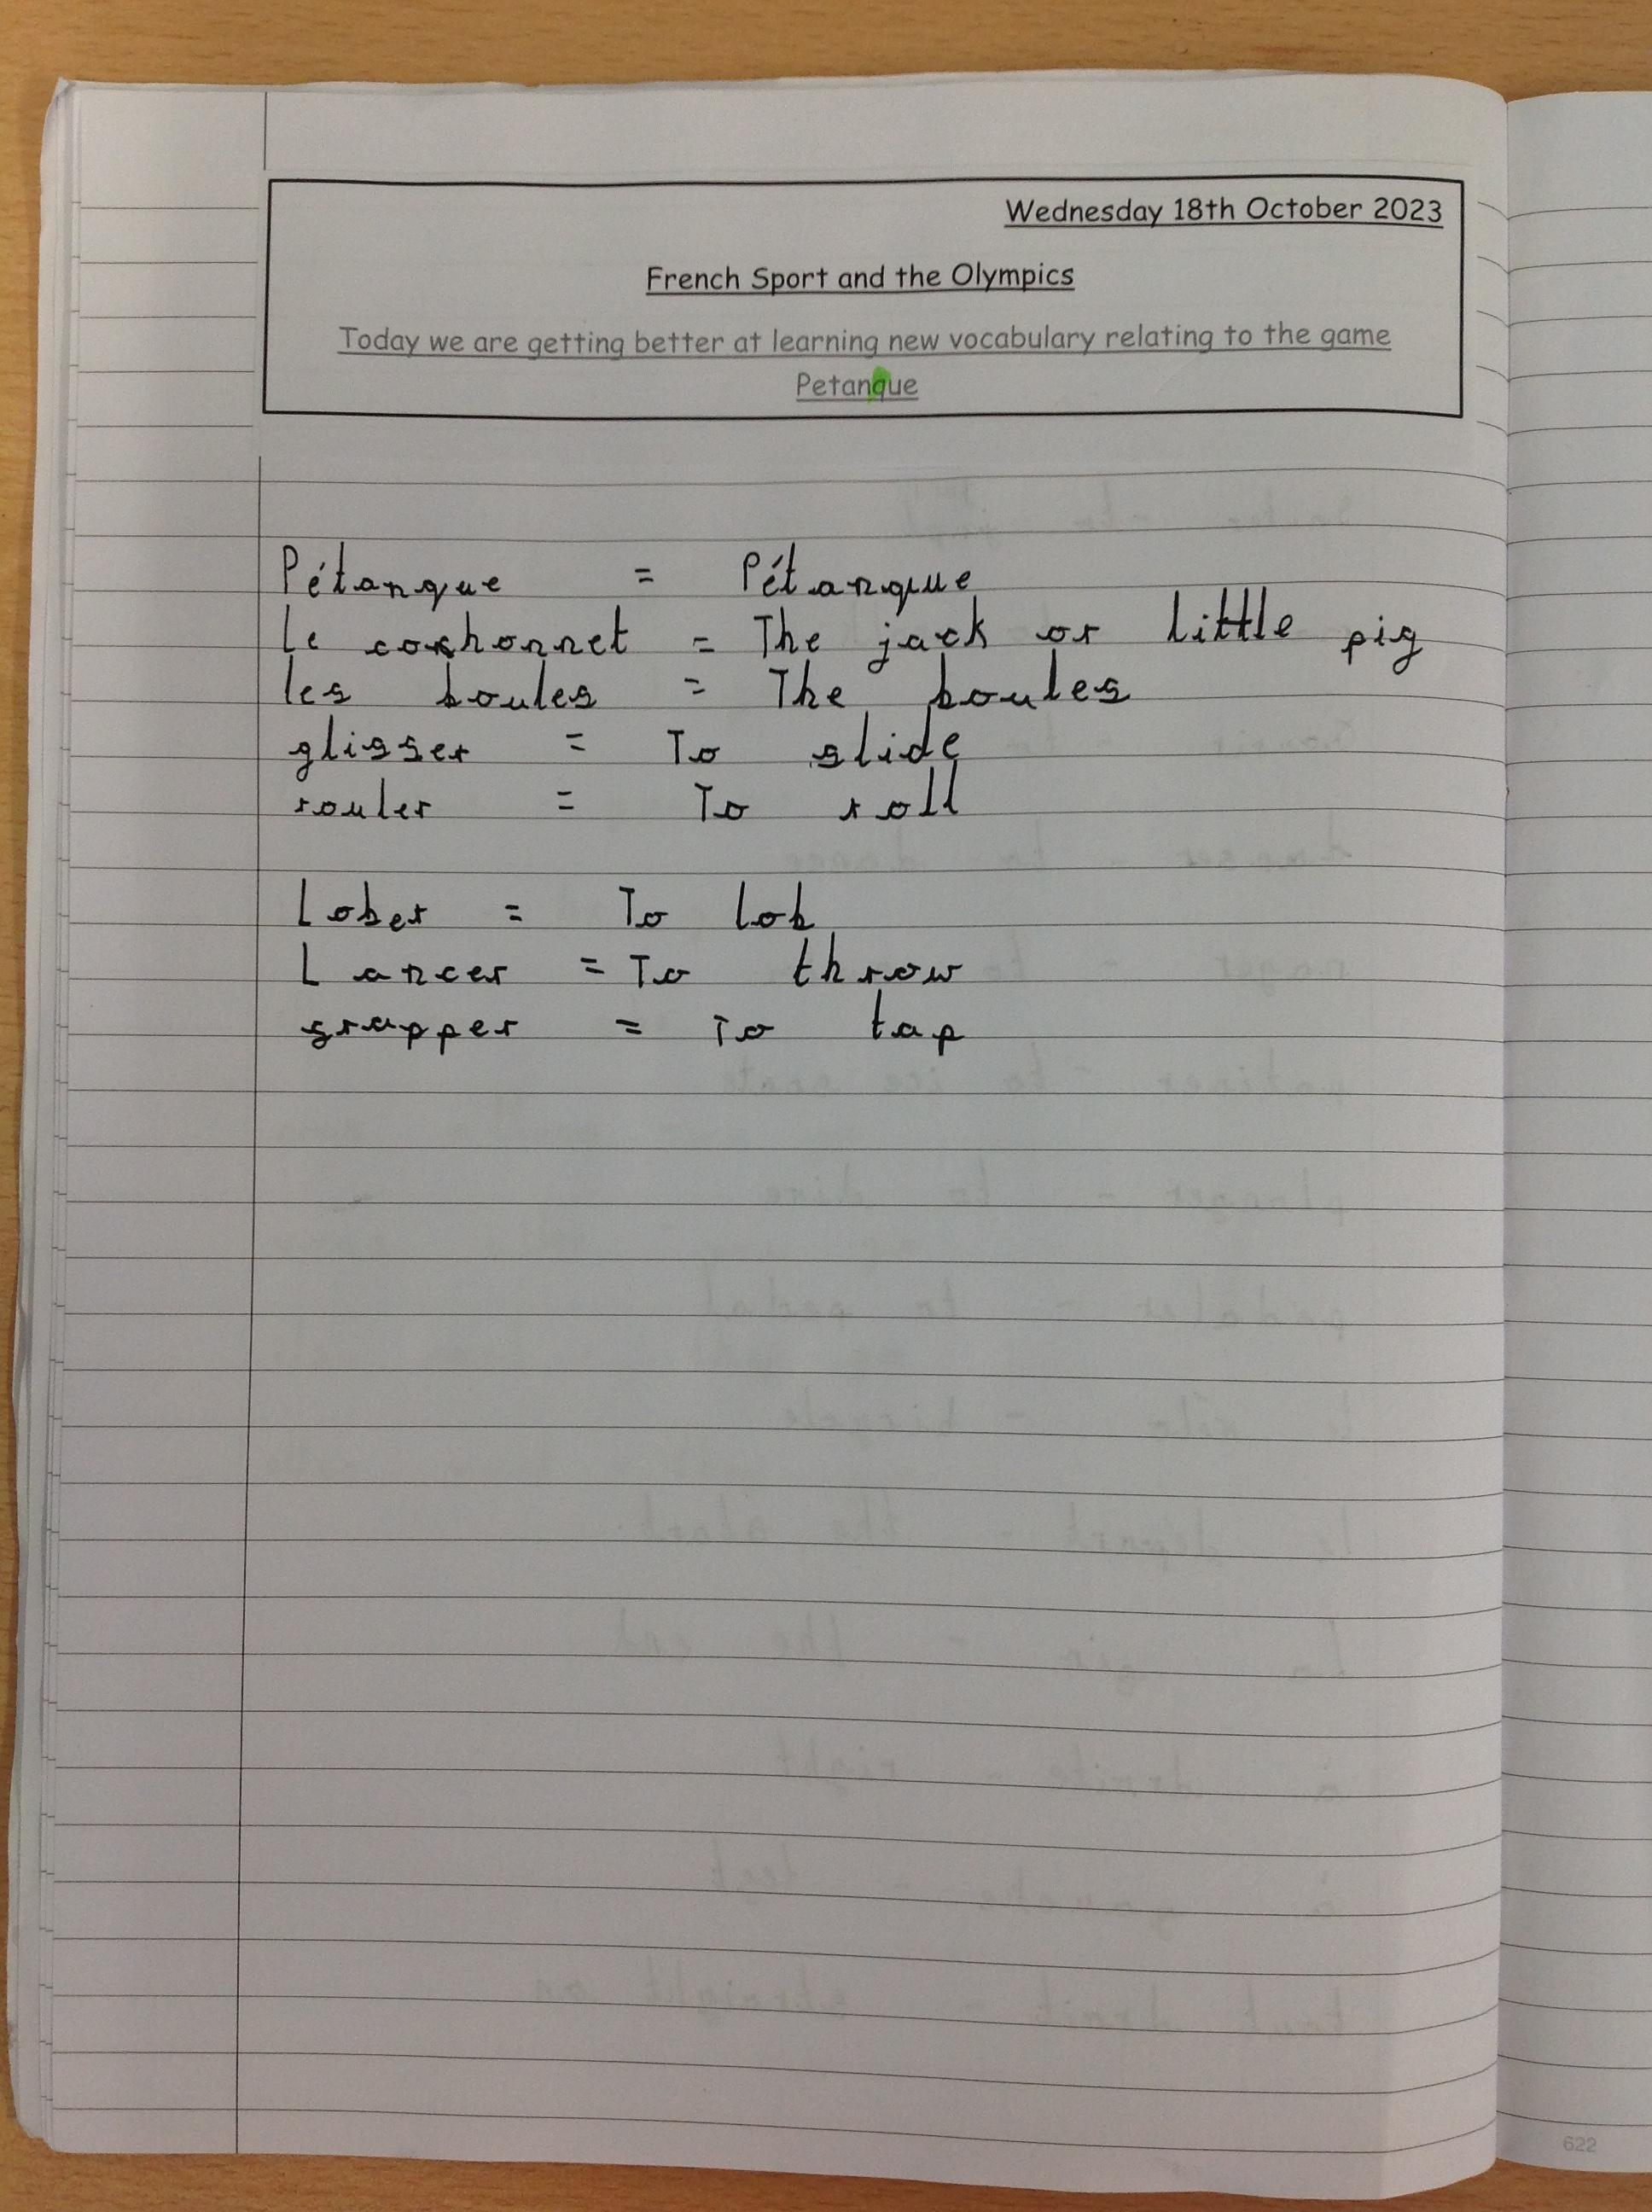 Wednesday 18th October 2023
French Sport and the Olympics
Today we are getting better at learning new vocabulary relating to the game
Petanque
Pétanque = Pétanque
Le coshonnet = The jack or little pig
les boules = The boules
glisser = To slide
rouler = To roll
Lober = To lob
Lancer = To throw
grapper = To tap
622